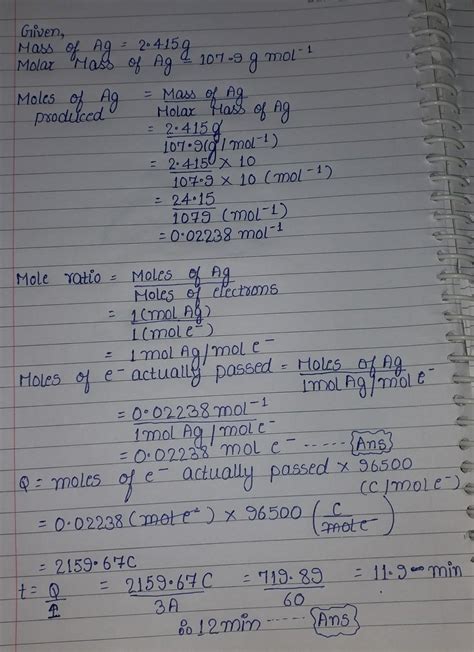 Given,
Mass of Ag = 2.415g
Molar Mass of Ag = 107.9 g mol⁻¹
Moles of Ag produced = Mass of Ag / Molar Mass of Ag
= 2.415g / 107.9(g/mol⁻¹)
= 2.415 × 10 / 107.9 × 10 (mol⁻¹)
= 24.15 / 1079 (mol⁻¹)
= 0.02238 mol⁻¹
Mole ratio = Moles of Ag / Moles of electrons
= 1(mol Ag) / 1(mol e⁻)
= 1mol Ag/mol e⁻
Moles of e⁻ actually passed = Moles of Ag / 1mol Ag/mol e⁻
= 0.02238 mol⁻¹ / 1mol Ag/mol e⁻
= 0.02238 mol e⁻ ------ {Ans}
Q = moles of e⁻ actually passed × 96500 (C/mol e⁻)
= 0.02238 (mol e⁻) × 96500 (C/mol e⁻)
= 2159.67C
t = Q/I = 2159.67C / 3A = 719.89 / 60 = 11.9~ min
≈ 12min ------ {Ans}